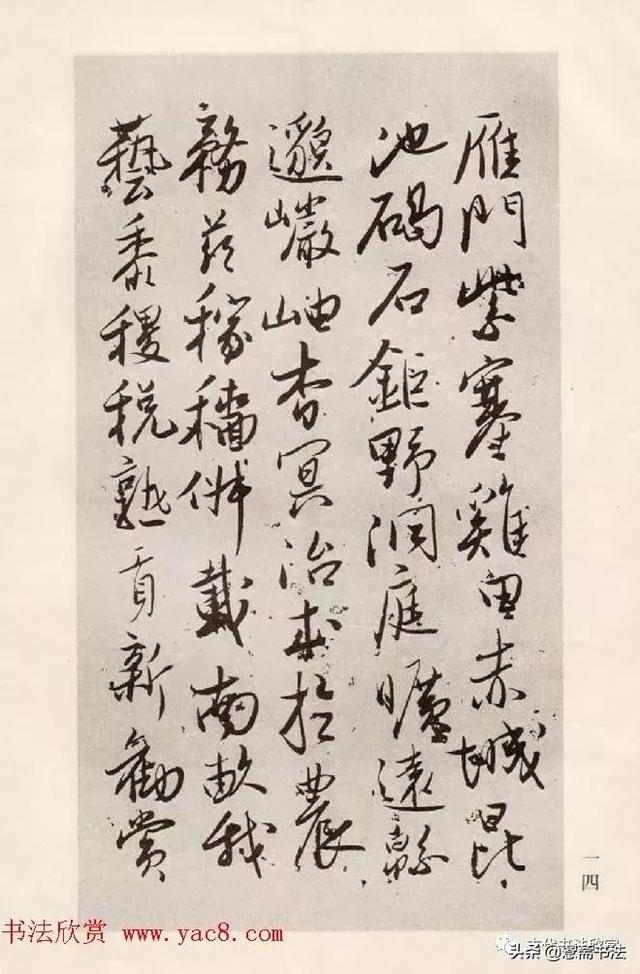 雁門紫塞雞田赤城昆
池碣石鉅野洞庭曠遠緜
邈巖岫杳冥治本於農
務茲稼穡俶載南畝我
藝黍稷稅熟貢新勸賞
一四
书法欣赏 www.yac8.com
古代书法欣赏
头条 @书法